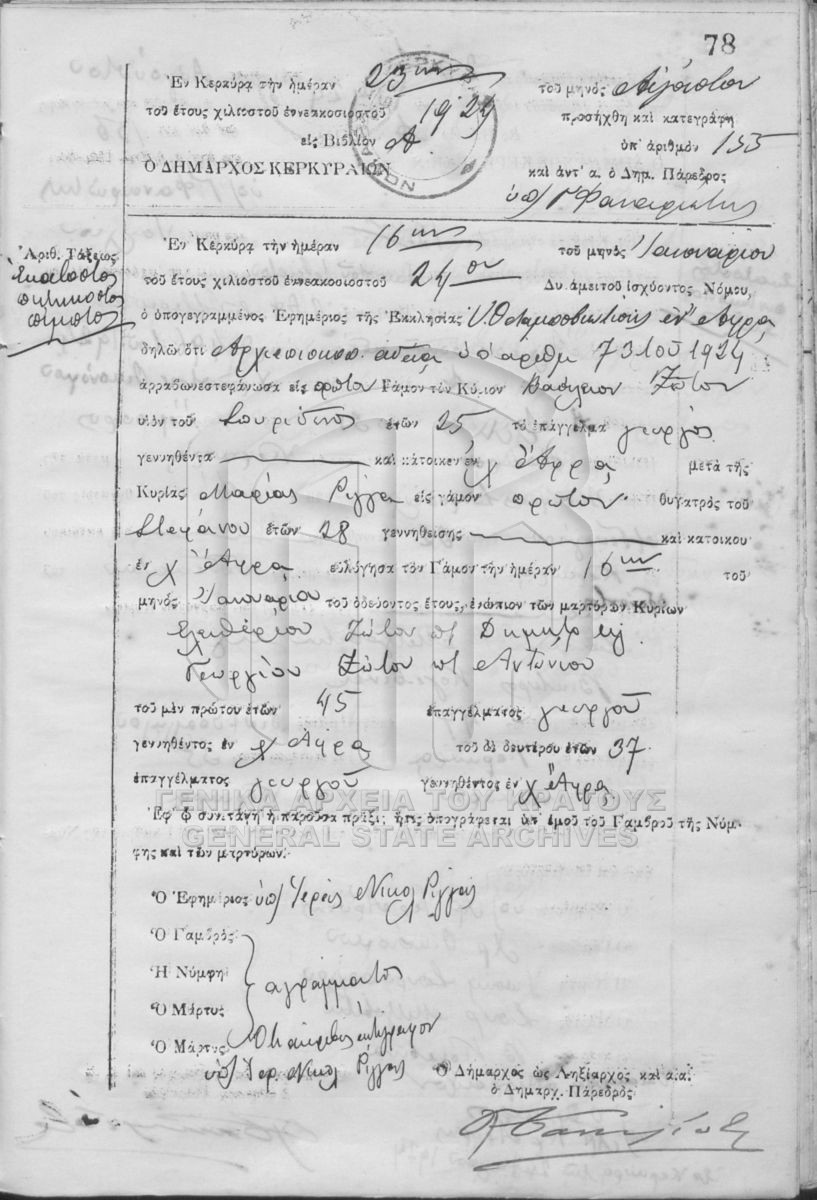 78
Ἐν Κερκύρᾳ τὴν ἡμέραν 23ην τοῦ μηνὸς Αὐγούστου
τοῦ ἔτους χιλιοστοῦ ἐννεακοσιοστοῦ 1924 προσήχθη καὶ κατεγράφη
εἰς Βιβλίον Α ὑπ' ἀριθμὸν 155
Ὁ ΔΗΜΑΡΧΟΣ ΚΕΡΚΥΡΑΙΩΝ καὶ ἀντ' α. ὁ Δημ. Πάρεδρος
ὑπ/
Ἀριθ. Τάξεως
Ἑκατοστὸς
πεντηκοστὸς
πέμπτος
Ἐν Κερκύρᾳ τὴν ἡμέραν 16ην τοῦ μηνὸς Ἰανουαρίου
τοῦ ἔτους χιλιοστοῦ ἐννεακοσιοστοῦ 24ου Δυνάμει τοῦ ἰσχύοντος Νόμου,
ὁ ὑπογεγραμμένος Ἐφημέριος τῆς Ἐκκλησίας ἐν Ἄφρᾳ
δηλῶ ὅτι ὑπ' ἀριθμ 73 τοῦ 1924
ἀρραβωνεστεφάνωσα εἰς πρῶτον Γάμον τὸν Κύριον Βασίλειον Ζῶτον
υἱὸν τοῦ Σπυρίδωνος ἐτῶν 25 τὸ ἐπάγγελμα γεωργὸς
γεννηθέντα καὶ κάτοικον ἐν χ Ἄφρᾳ μετὰ τῆς
Κυρίας Μαρίας Ρίγγα εἰς γάμον πρῶτον θυγατρὸς τοῦ
Στεφάνου ἐτῶν 28 γεννηθείσης καὶ κατοίκου
ἐν χ Ἄφρᾳ εὐλόγησα τὸν Γάμον τὴν ἡμέραν 16ην τοῦ
μηνὸς Ἰανουαρίου τοῦ ὁδεύοντος ἔτους, ἐνώπιον τῶν μαρτύρων Κυρίων
Ἐλευθερίου Ζώτου π/ Δημητρίου
Γεωργίου Ζώτου π/ Ἀντώνιου
τοῦ μὲν πρώτου ἐτῶν 45 ἐπαγγέλματος γεωργοῦ
γεννηθέντος ἐν χ Ἄφρᾳ τοῦ δὲ δευτέρου ἐτῶν 37
ἐπαγγέλματος γεωργοῦ γεννηθέντος ἐν χ Ἄφρᾳ
ΓΕΝΙΚΑ ΑΡΧΕΙΑ ΤΟΥ ΚΡΑΤΟΥΣ
GENERAL STATE ARCHIVES
Ἐφ' ᾧ συνετάγη ἡ παροῦσα πρᾶξις ἥτις ὑπογράφεται ὑπ' ἐμοῦ τοῦ Γαμβροῦ τῆς Νύμ-
φης καὶ τῶν μαρτύρων.
Ὁ Ἐφημέριος ὑπ/ Ἱερεὺς Νικολ Ρίγγας
Ὁ Γαμβρὸς
Ἡ Νύμφη ἀγράμματος
Ὁ Μάρτυς
Ὁ Μάρτυς ἀκριβὲς ἀντίγραφον
ὑπ/ Ἱερ. Νικολ Ρίγγας
Ὁ Δήμαρχος ὡς Ληξίαρχος καὶ α.α.
ὁ Δημαρχ. Πάρεδρος